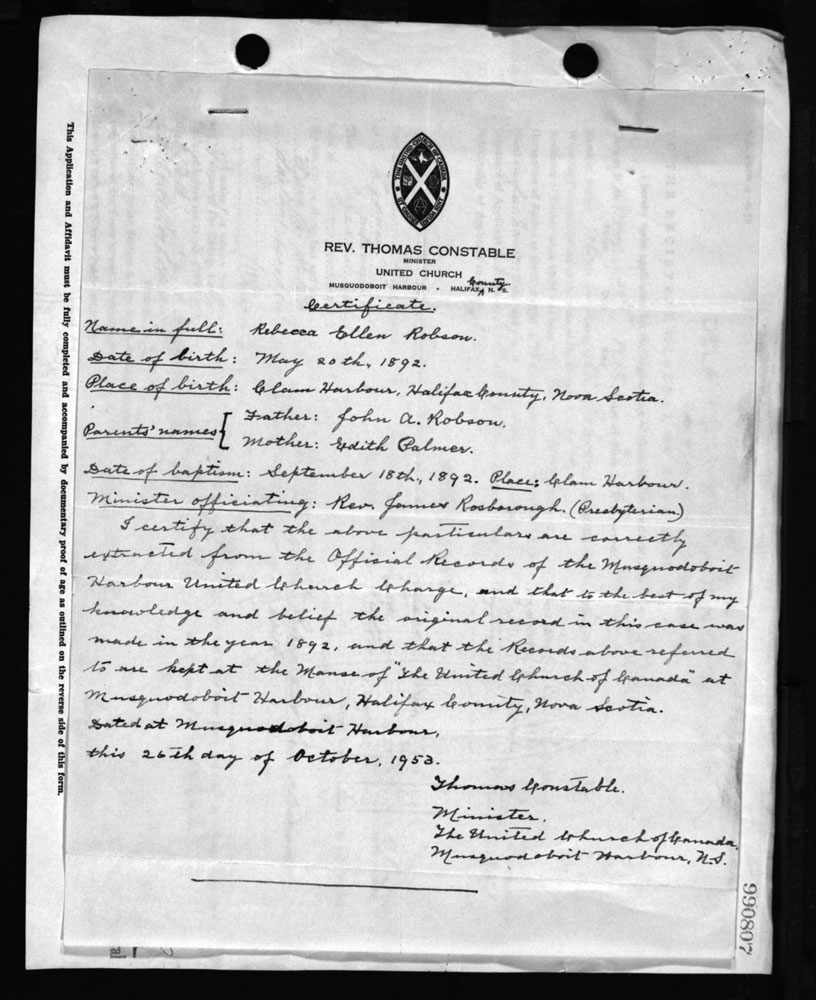 THE UNITED CHURCH OF CANADA
REV. THOMAS CONSTABLE
MINISTER
UNITED CHURCH
MUSQUODOBOIT HARBOUR - HALIFAX County N. S.
Certificate.
Name in full: Rebecca Ellen Robson.
Date of birth: May 20th, 1892.
Place of birth: Clam Harbour, Halifax County, Nova Scotia.
Parents' names { Father: John A. Robson.
Mother: Edith Palmer.
Date of baptism: September 18th, 1892. Place: Clam Harbour.
Minister officiating: Rev. James Rosborough. (Presbyterian)
I certify that the above particulars are correctly
extracted from the Official Records of the Musquodoboit
Harbour United Church Charge, and that to the best of my
knowledge and belief the original record in this case was
made in the year 1892, and that the Records above referred
to are kept at the Manse of "The United Church of Canada" at
Musquodoboit Harbour, Halifax County, Nova Scotia.
Dated at Musquodoboit Harbour,
this 26th day of October, 1953.
Thomas Constable.
Minister.
The United Church of Canada,
Musquodoboit Harbour, N.S.
This Application and Affidavit must be fully completed and accompanied by documentary proof of age as outlined on the reverse side of this form.
990807